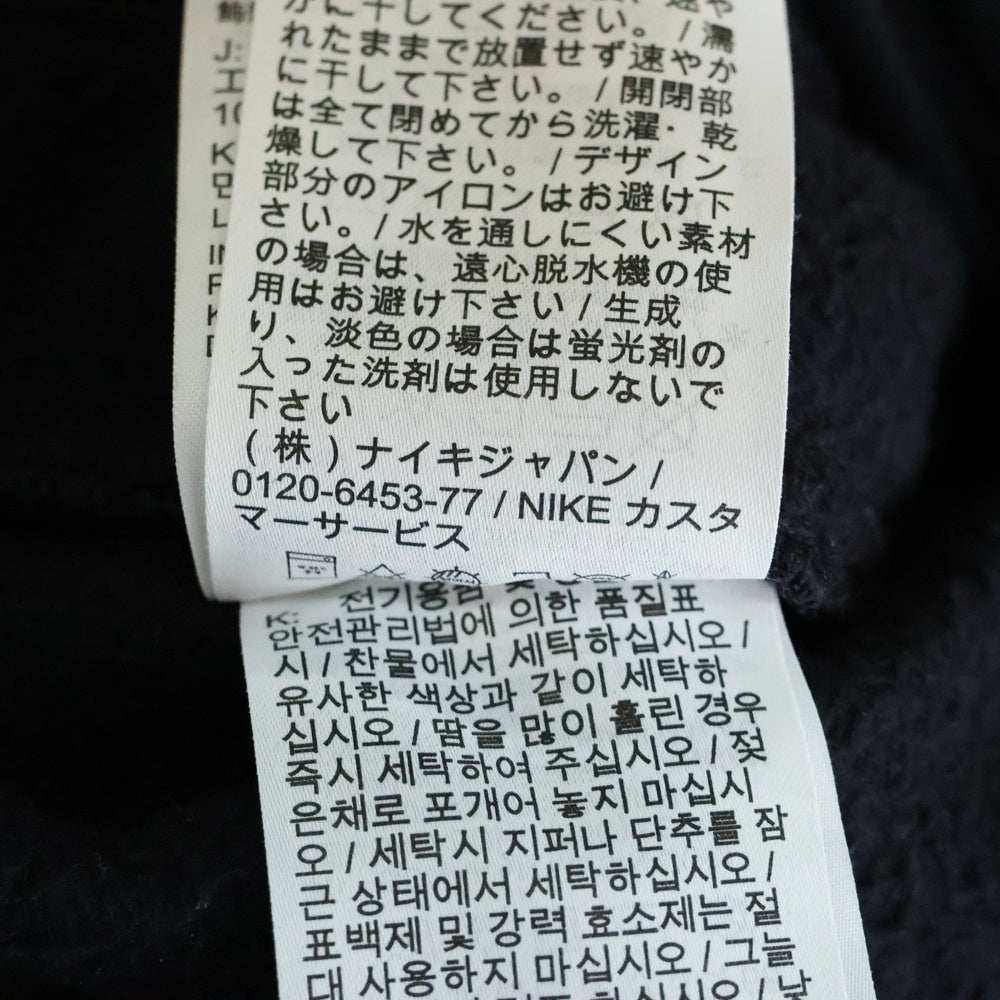 に干してください。/ 濡
れたままで放置せず速やか
に干して下さい。/ 開閉部
は全て閉めてから洗濯・乾
燥して下さい。/ デザイン
部分のアイロンはお避け下
さい。/ 水を通しにくい素材
の場合は、遠心脱水機の使
用はお避け下さい / 生成
り、淡色の場合は蛍光剤の
入った洗剤は使用しないで
下さい
(株) ナイキジャパン /
0120-6453-77 / NIKE カスタ
マーサービス
J:
工
10
K
민
IN
K: 전기용품 의한 품질표
안전관리법에 세탁하십시오 /
시 / 찬물에서 세탁하
유사한 색상과 같이 세탁하
십시오 / 땀을 많이 흘린 경우
즉시 세탁하여 주십시오 / 젖
은채로 포개어 놓지 마십시
오 / 세탁시 지퍼나 단추를 잠
근 상태에서 세탁하십시오 /
표백제 및 강력 효소제는 절
대 사용하지 마십시오 / 그늘